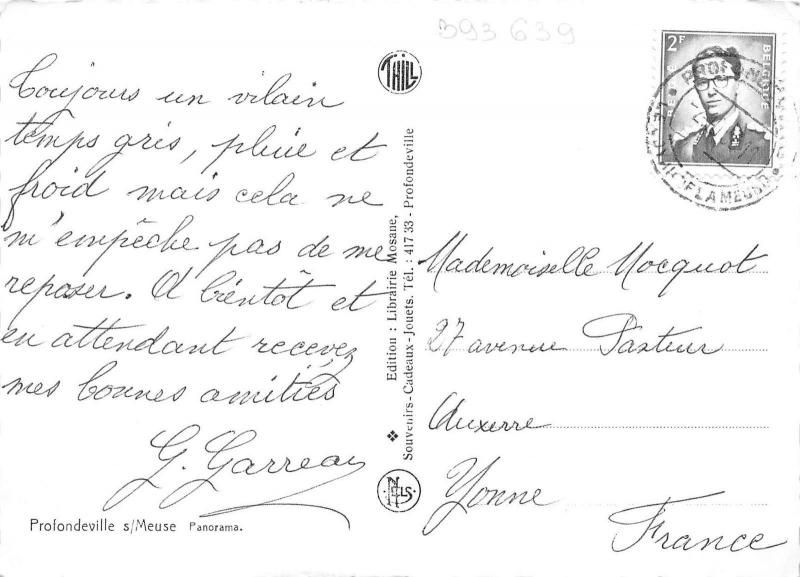 393 639
Toujours un vilain
temps gris, pluie et
froid mais cela ne
m'empêche pas de me
reposer. A bientôt et
en attendant recevez
mes bonnes amitiés
G. Garreau
Profondeville s/Meuse Panorama.
THILL
Edition : Librairie Mosane,
Souvenirs-Cadeaux-Jouets. Tél. : 417 33 - Profondeville
NELS
2F
BELGIQUE
Mademoiselle Mocquot
27 avenue Pasteur
Auxerre
Yonne
France